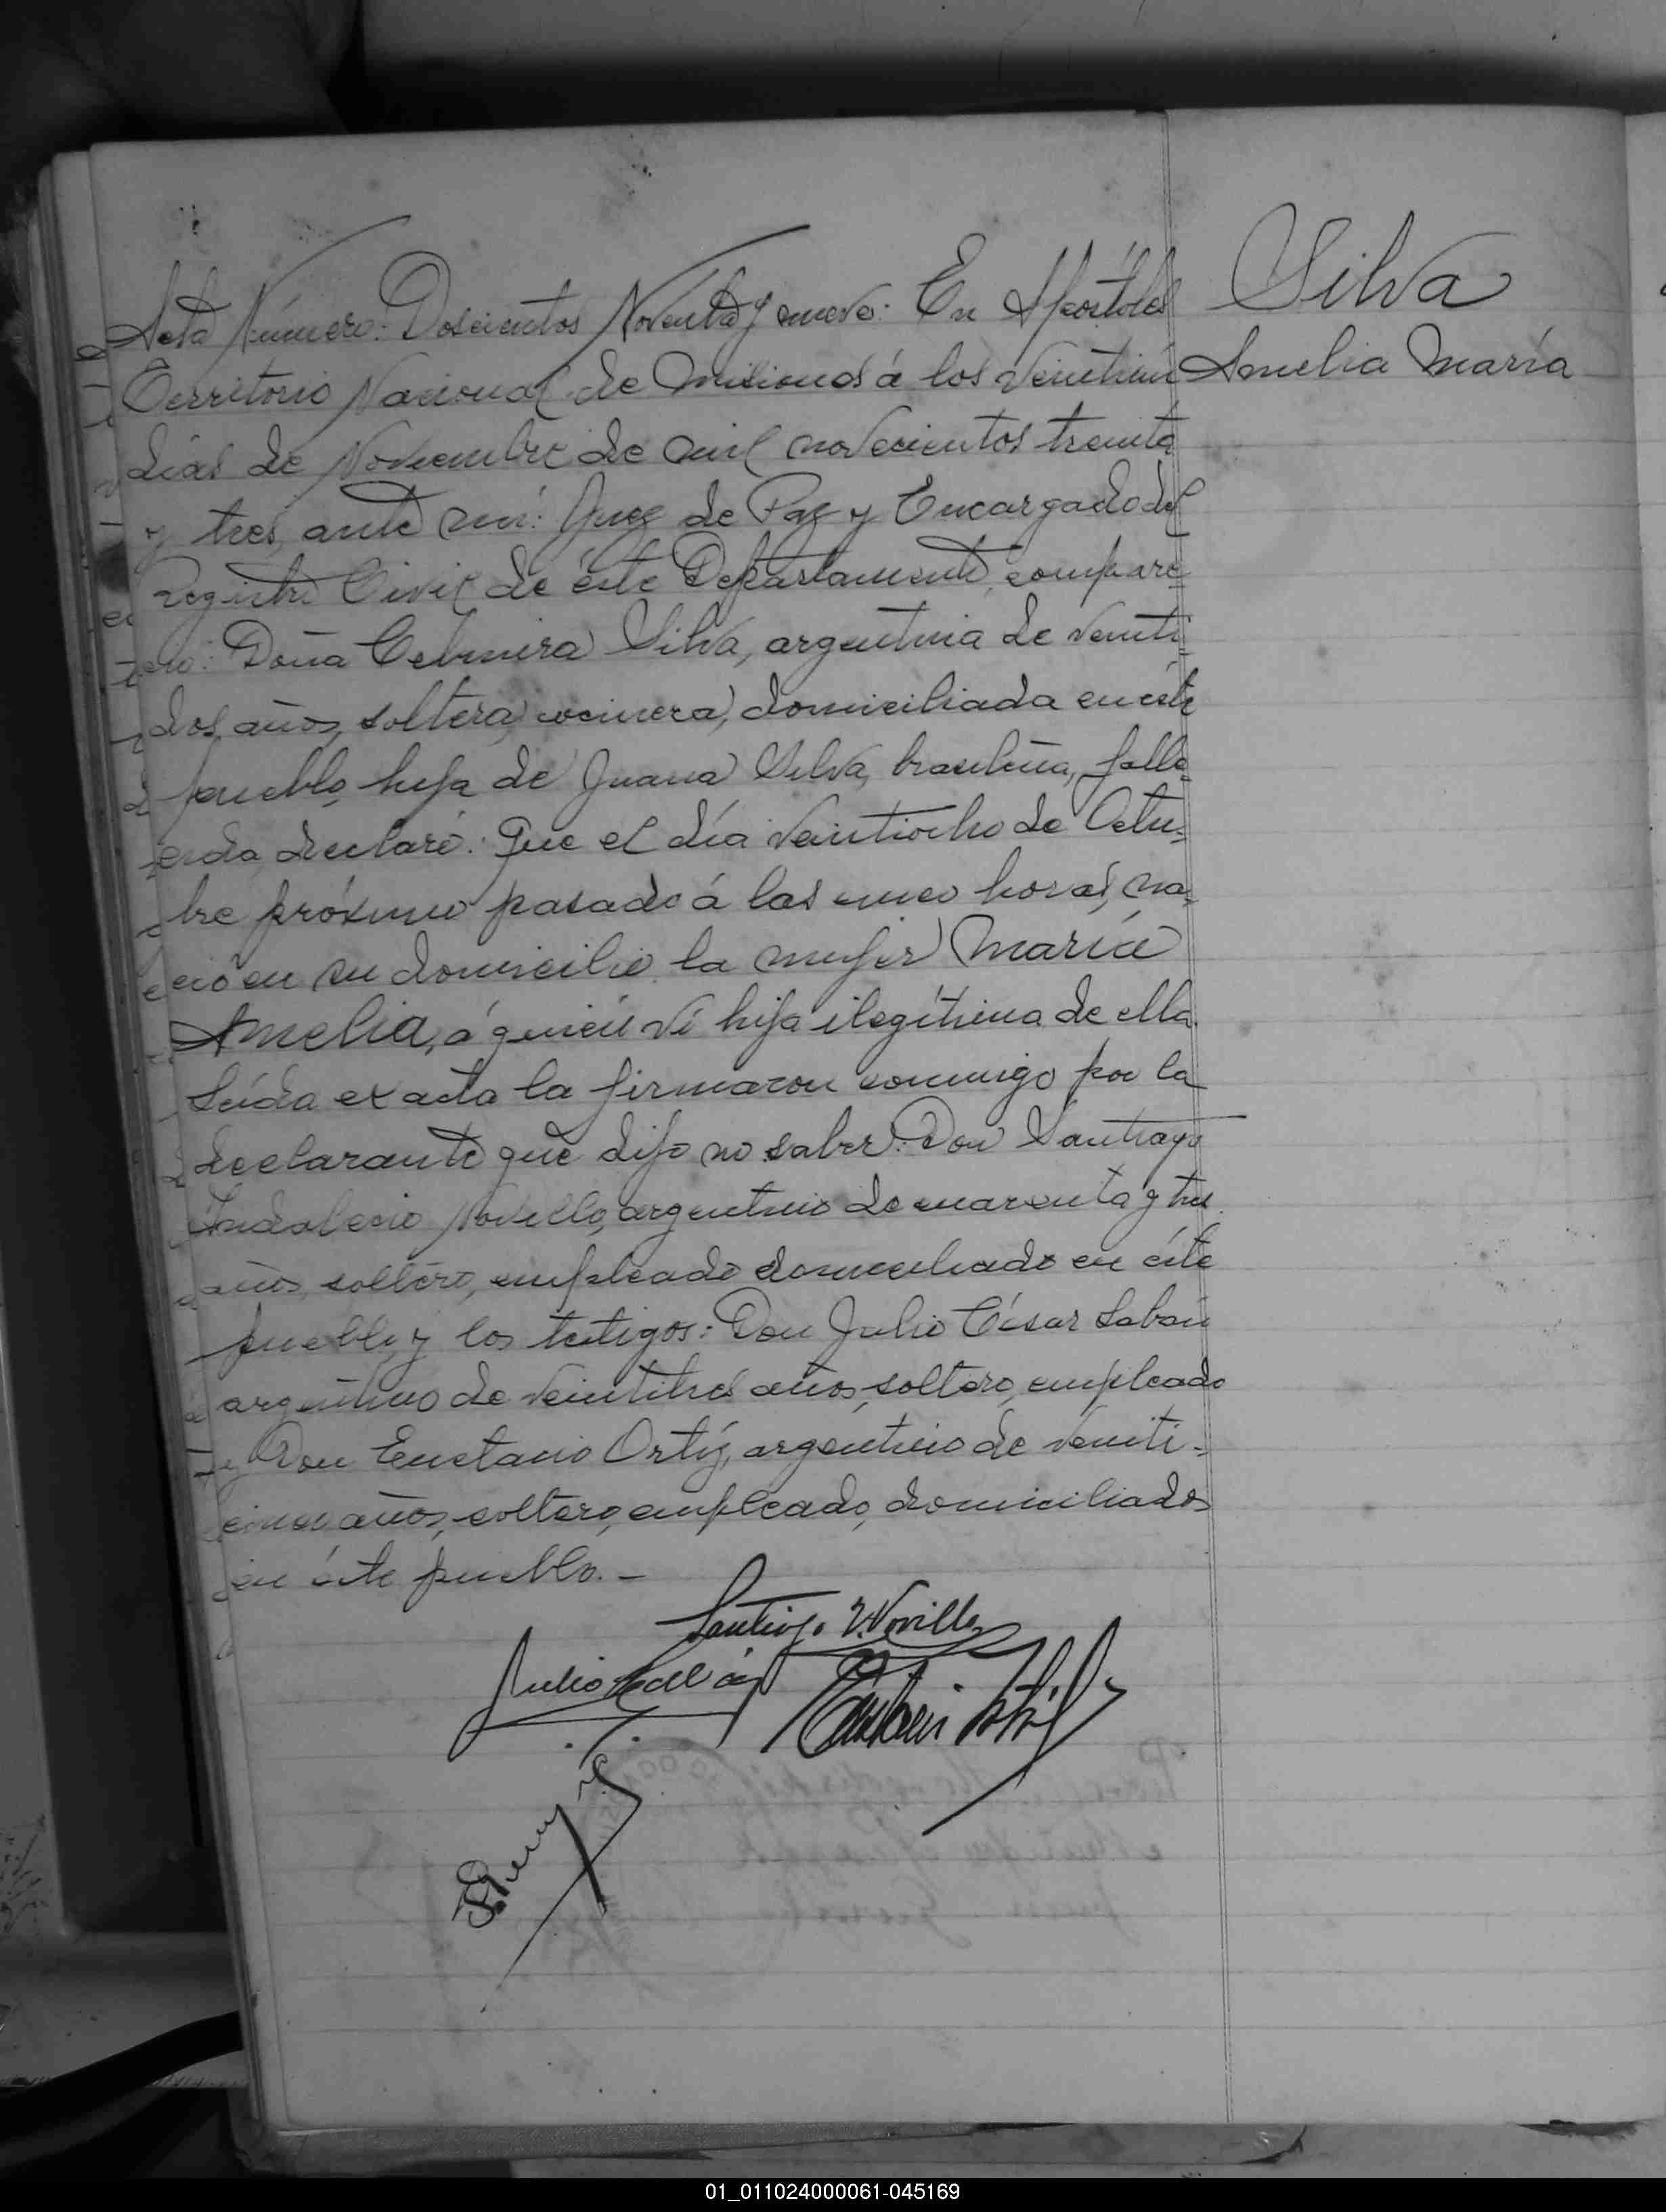 Silva
Amelia María
Acta Número: Doscientos Noventa y nueve: En Apóstoles
Territorio Nacional de Misiones á los veintiún
días de Noviembre de mil novecientos treinta
y tres, ante mí: Juez de Paz y Encargado del
Registro Civil de éste Departamento, compare=
ció: Doña Celmira Silva, argentina de veinti=
dos años, soltera, cocinera, domiciliada en éste
pueblo, hija de Juana Silva, brasileña, falle=
cida, declaró: Que el día veintiocho de Octu=
bre próximo pasado á las cinco horas, na=
ció en su domicilio la mujer María
Amelia, á quién ví hija ilegítima de ella.
Leída el acta la firmaron conmigo por la
declarante que dijo no saber: Don Santiago
Indalecio Novillo, argentino de cuarenta y tres
años, soltero, empleado domiciliado en éste
pueblo, y los testigos: Don Julio César
argentino de veintitres años, soltero, empleado
y Don Ortíz, argentino de veinti=
cinco años, soltero, empleado, domiciliados
en éste pueblo.-
Santiago I. Novillo
Julio
01_011024000061-045169